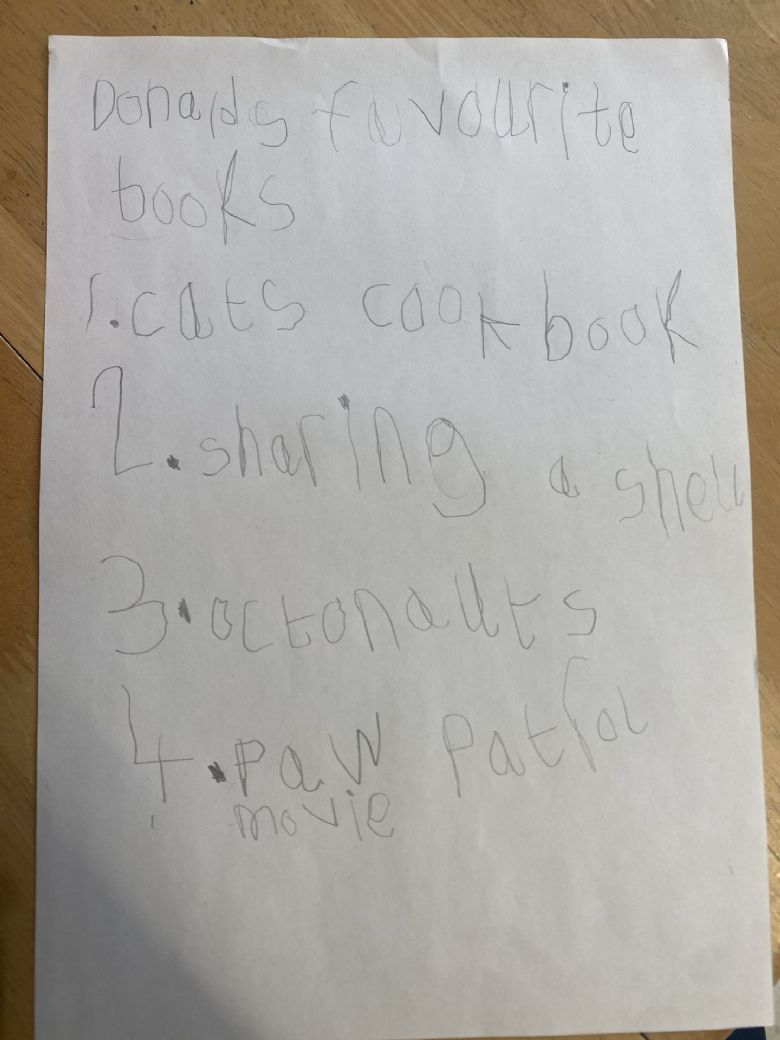 Donalds favourite
books
1. cats cookbook
2. sharing a shell
3. octonauts
4. paw patrol
movie